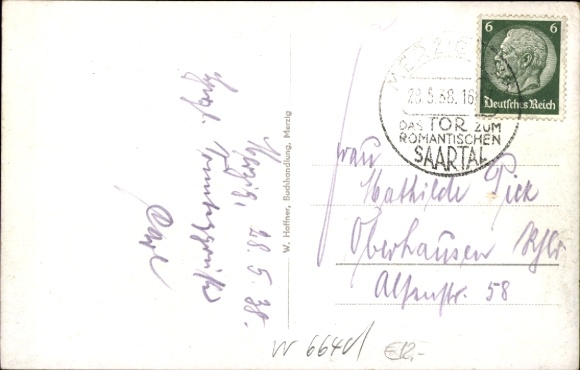 Merzig, 28.5.38.
Carl
W. Hoffner, Buchhandlung, Merzig
6 6
Deutsches Reich
MERZIG
28.5.38.16
DAS TOR ZUM
ROMANTISCHEN
SAARTAL
Frau
Mathilde Pick
Oberhausen Rhld.
Alsenstr. 58
W 6640
€12,-